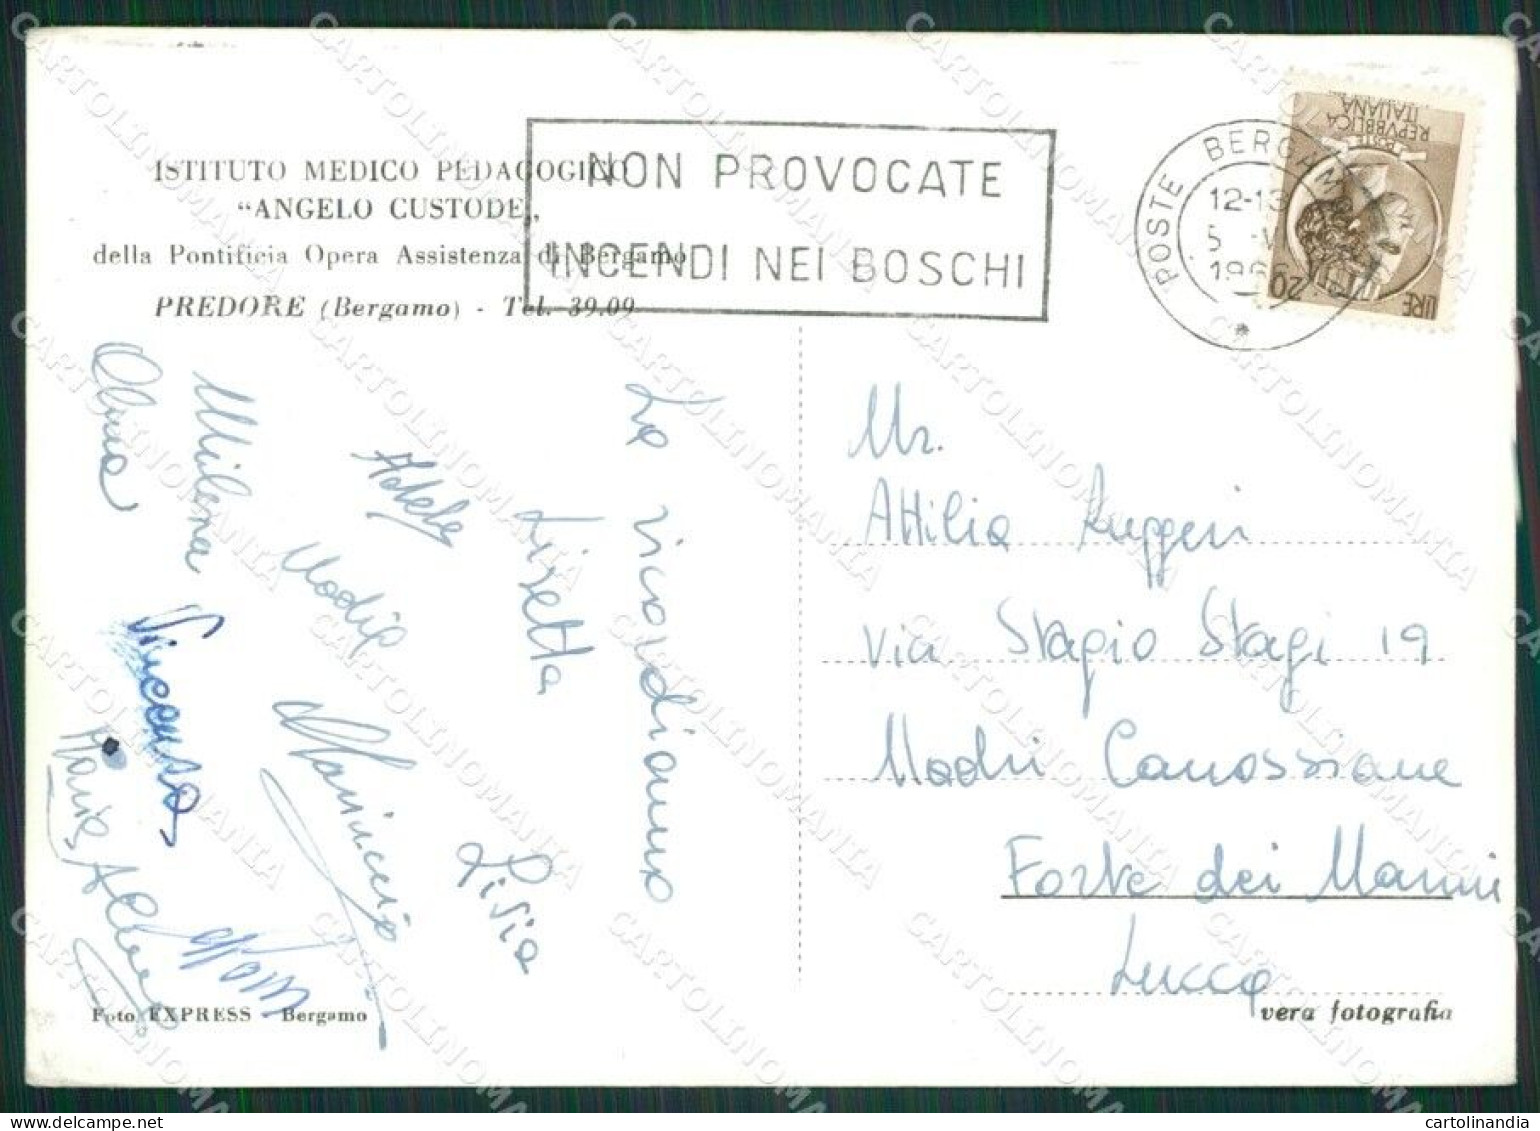 ISTITUTO MEDICO PEDAGOGICO
“ANGELO CUSTODE„
della Pontificia Opera Assistenza di Bergamo
PREDORE (Bergamo) - Tel. 39.09
NON PROVOCATE
INCENDI NEI BOSCHI
POSTE BERGAM
12-13
5
196
REPVBBLICA
ITALIANA
POSTE
LIRE 20
La ricordiamo
Lisetta
Lisia
Adele
Nadia
Milena
Vincenza
Foto EXPRESS - Bergamo
Mr.
Attilia Ruggeri
Via Stagio Stagi 19
Madri Canossiane
Forte dei Marmi
Lucca
vera fotografia
CARTOLINOMANIA
www.delcampe.net
cartolinandia